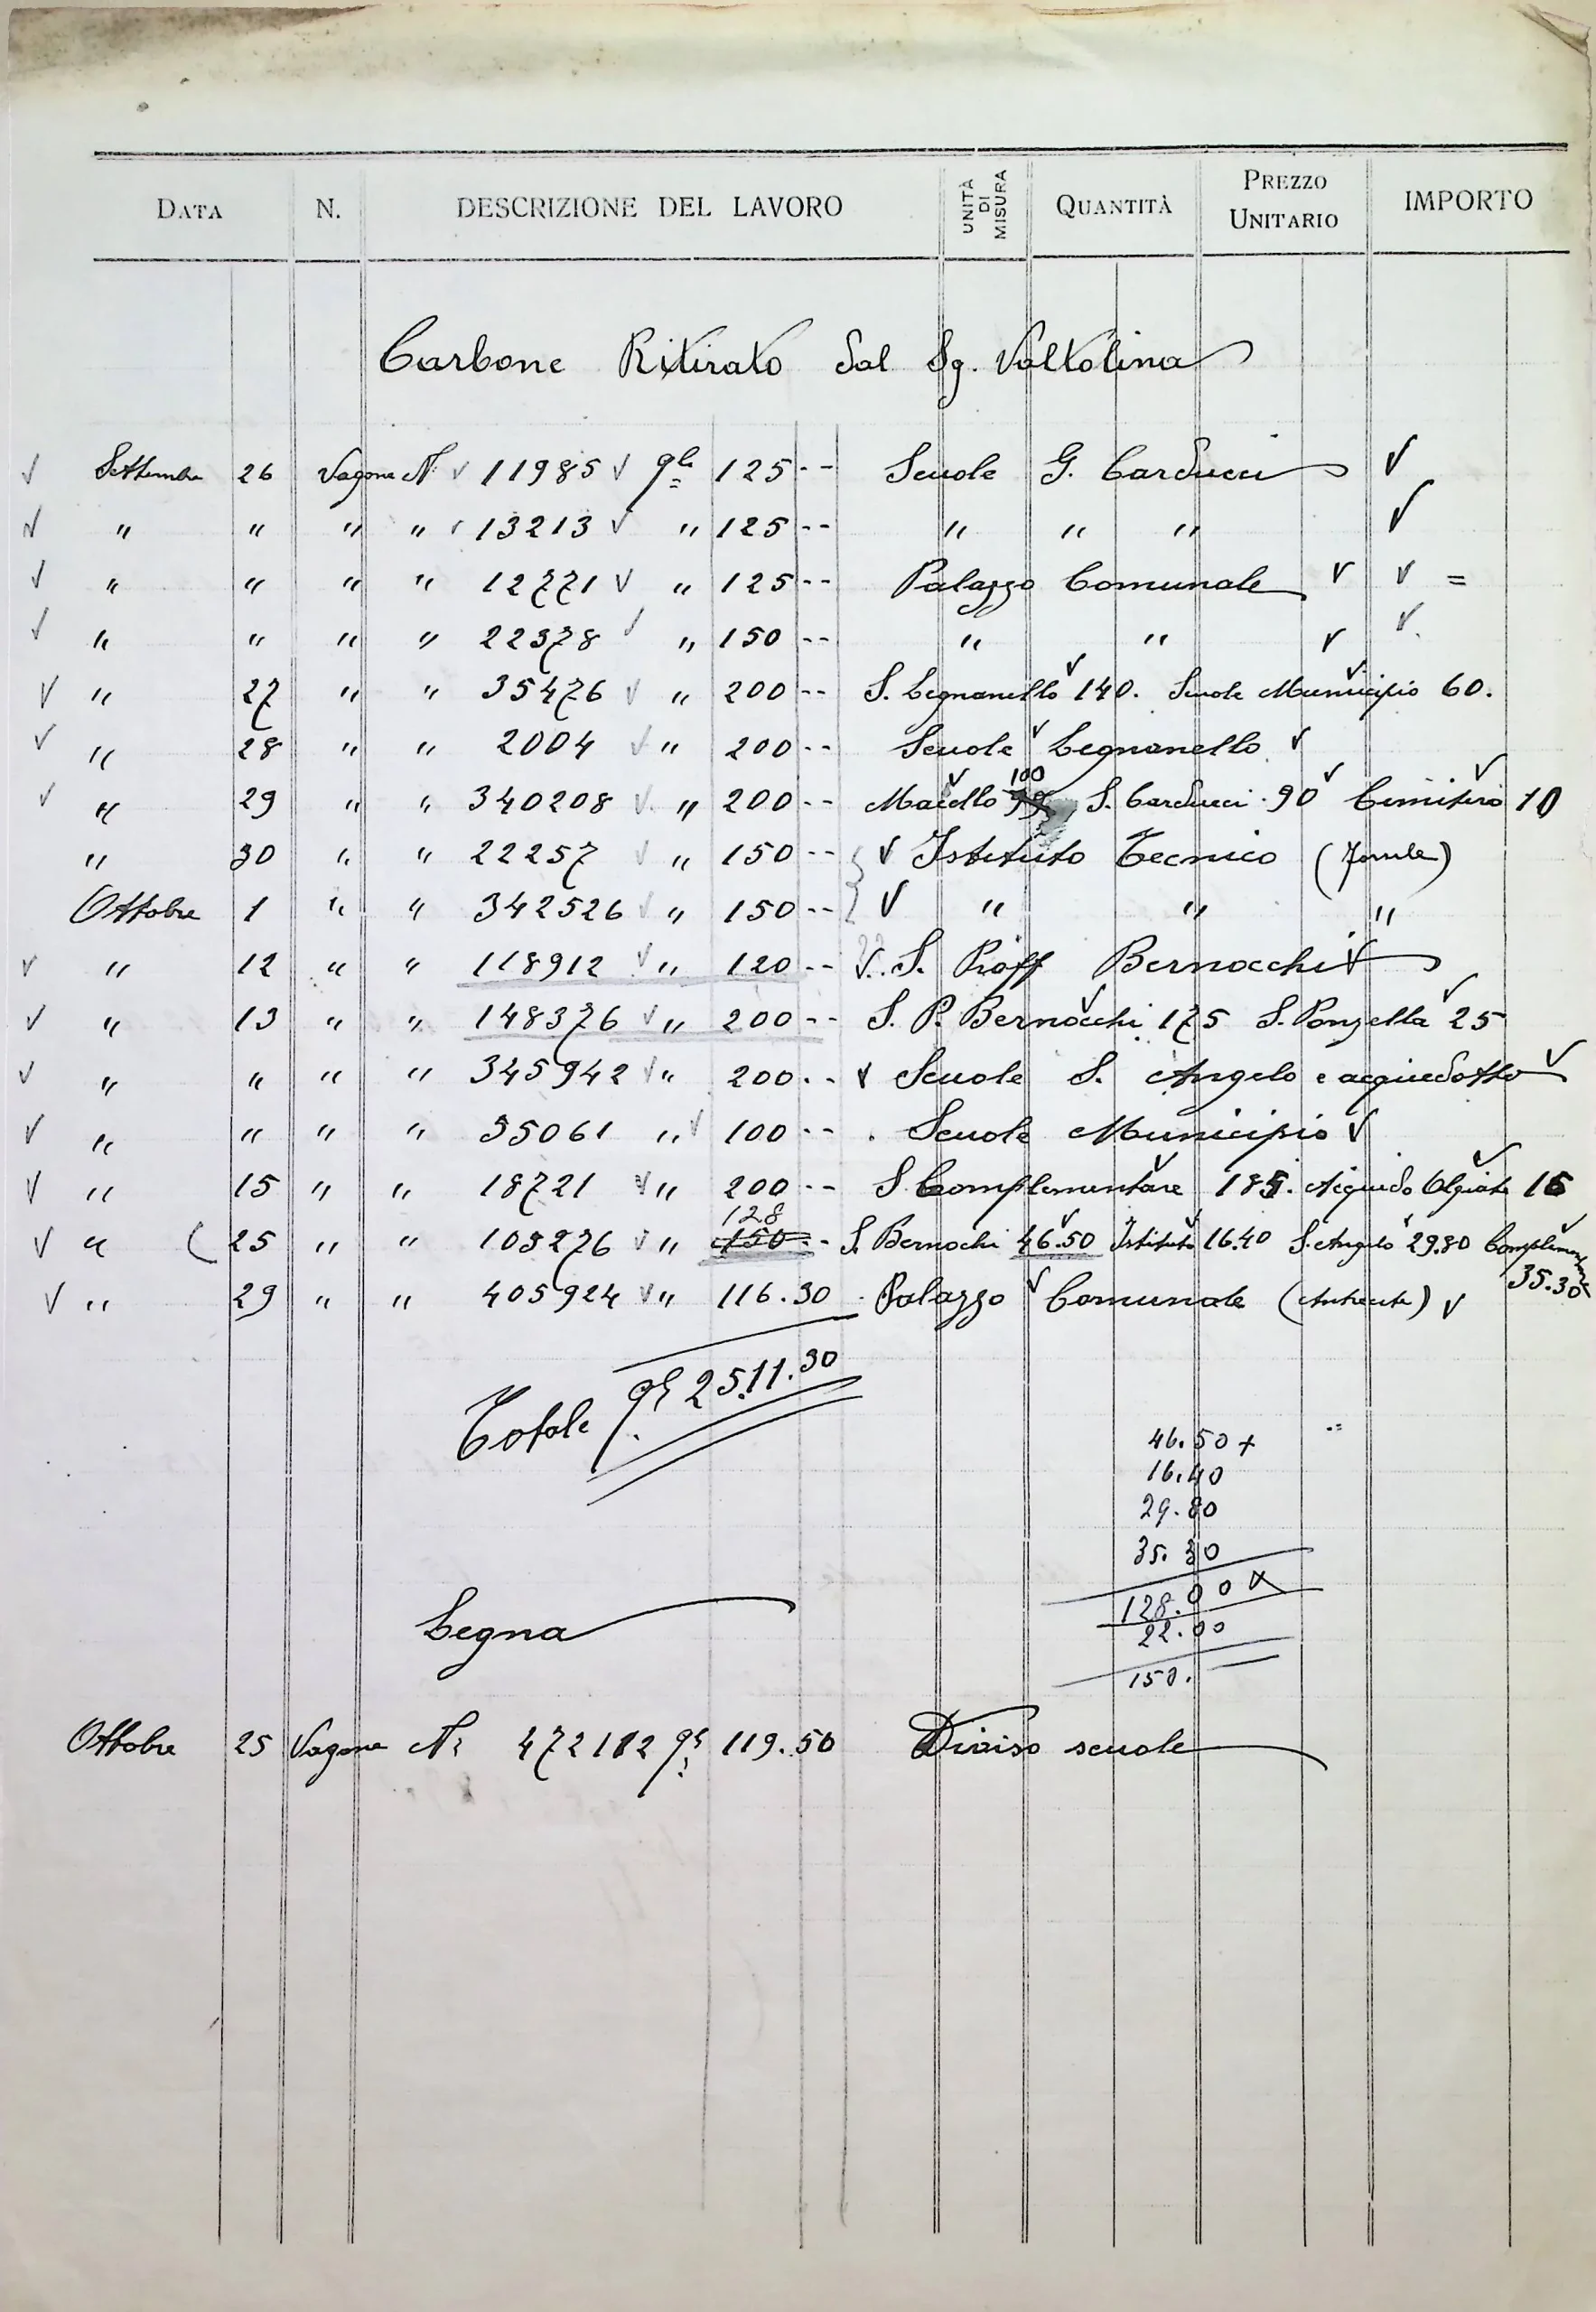 DATA N. DESCRIZIONE DEL LAVORO UNITÀ DI MISURA QUANTITÀ PREZZO UNITARIO IMPORTO
Carbone Ritirato dal Sg. Valtolina
✓ Settembre 26 Vagone N. ✓ 11985 ✓ qli 125 -- Scuole G. Carducci ✓
✓ " " " " ✓ 13213 ✓ " 125 -- " " " ✓
✓ " " " " 12771 ✓ " 125 -- Palazzo Comunale ✓ ✓ =
✓ " " " " 22378 ✓ " 150 -- " " ✓ ✓
✓ " 27 " " 35476 ✓ " 200 -- S. Legnanello ✓ 140. Scuole Municipio ✓ 60.
✓ " 28 " " 2004 ✓ " 200 -- Scuole ✓ Legnanello ✓
✓ " 29 " " 340208 ✓ " 200 -- Macello ✓ 100 S. Carducci . 90 ✓ Cimitero ✓ 10
" 30 " " 22257 ✓ " 150 -- ✓ Istituto Tecnico
Ottobre 1 " " 342526 ✓ " 150 -- ✓ " " "
✓ " 12 " " 118912 ✓ " 120 -- ✓ S. Bernocchi ✓
✓ " 13 " " 148376 ✓ " 200 -- S. P. Bernocchi ✓ 175 S. Ponzella ✓ 25
✓ " " " " 345942 ✓ " 200 -- ✓ Scuole S. Angelo e acquedotto ✓
✓ " " " " 35061 " ✓ 100 -- . Scuole Municipio ✓
✓ " 15 " " 18721 ✓ " 200 -- S Complementare ✓ 185. Acquedo Olgiate ✓ 15
✓ " ( 25 " " 103276 ✓ " 128 150 -- S. Bernochi 46.50 ✓ Istituto ✓ 16.40 S. Angelo ✓ 29.80 ✓ 35.30
✓ " 29 " " 405924 ✓ " 116.30 . Palazzo ✓ Comunale ✓
Totale ql. 2511.30
46.50 +
16.40
29.80
35.30
128.00 X
22.00
150.
Legna
Ottobre 25 Vagone N. 472112 ql. 119.50 Diviso scuole